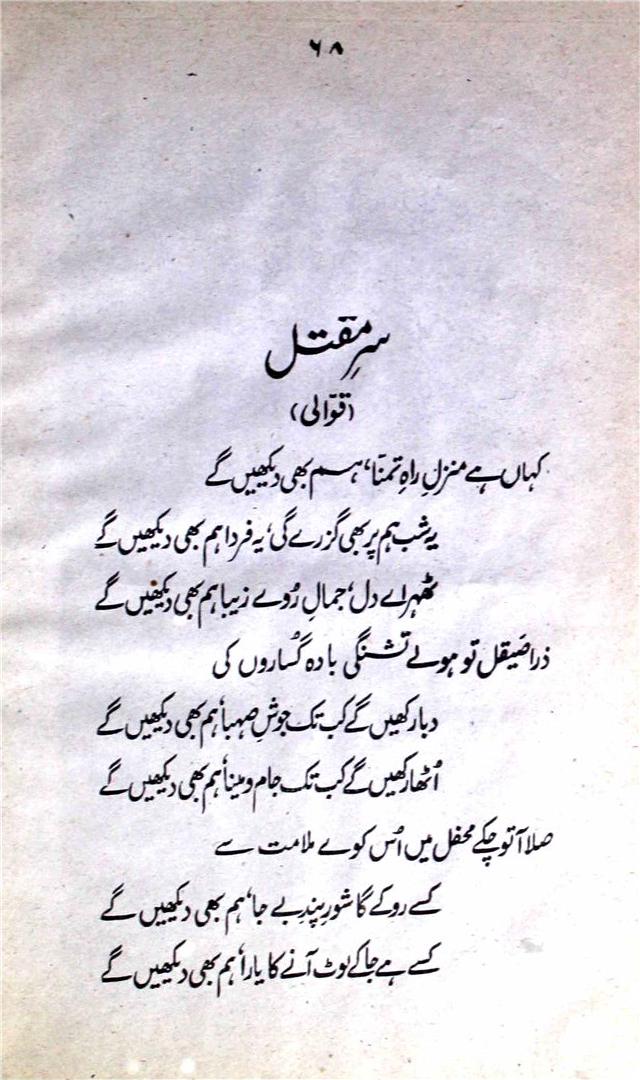 ۶۸
سرِ مقتل
(قوّالی)
کہاں ہے منزلِ راہِ تمنّا، ہم بھی دیکھیں گے
یہ شب ہم پر بھی گزرے گی، یہ فردا ہم بھی دیکھیں گے
ٹھہر اے دل، جمالِ رُوے زیبا ہم بھی دیکھیں گے
ذرا صَیقل تو ہولے تشنگی بادہ گُساروں کی
دبا رکھیں گے کب تک جوشِ صہبا، ہم بھی دیکھیں گے
اُٹھا رکھیں گے کب تک جام و مینا، ہم بھی دیکھیں گے
صلا آ تو چکے محفل میں اُس کوے ملامت سے
کسے روکے گا شورِ پندِ بے جا، ہم بھی دیکھیں گے
کسے ہے جاکے لوٹ آنے کا یارا، ہم بھی دیکھیں گے